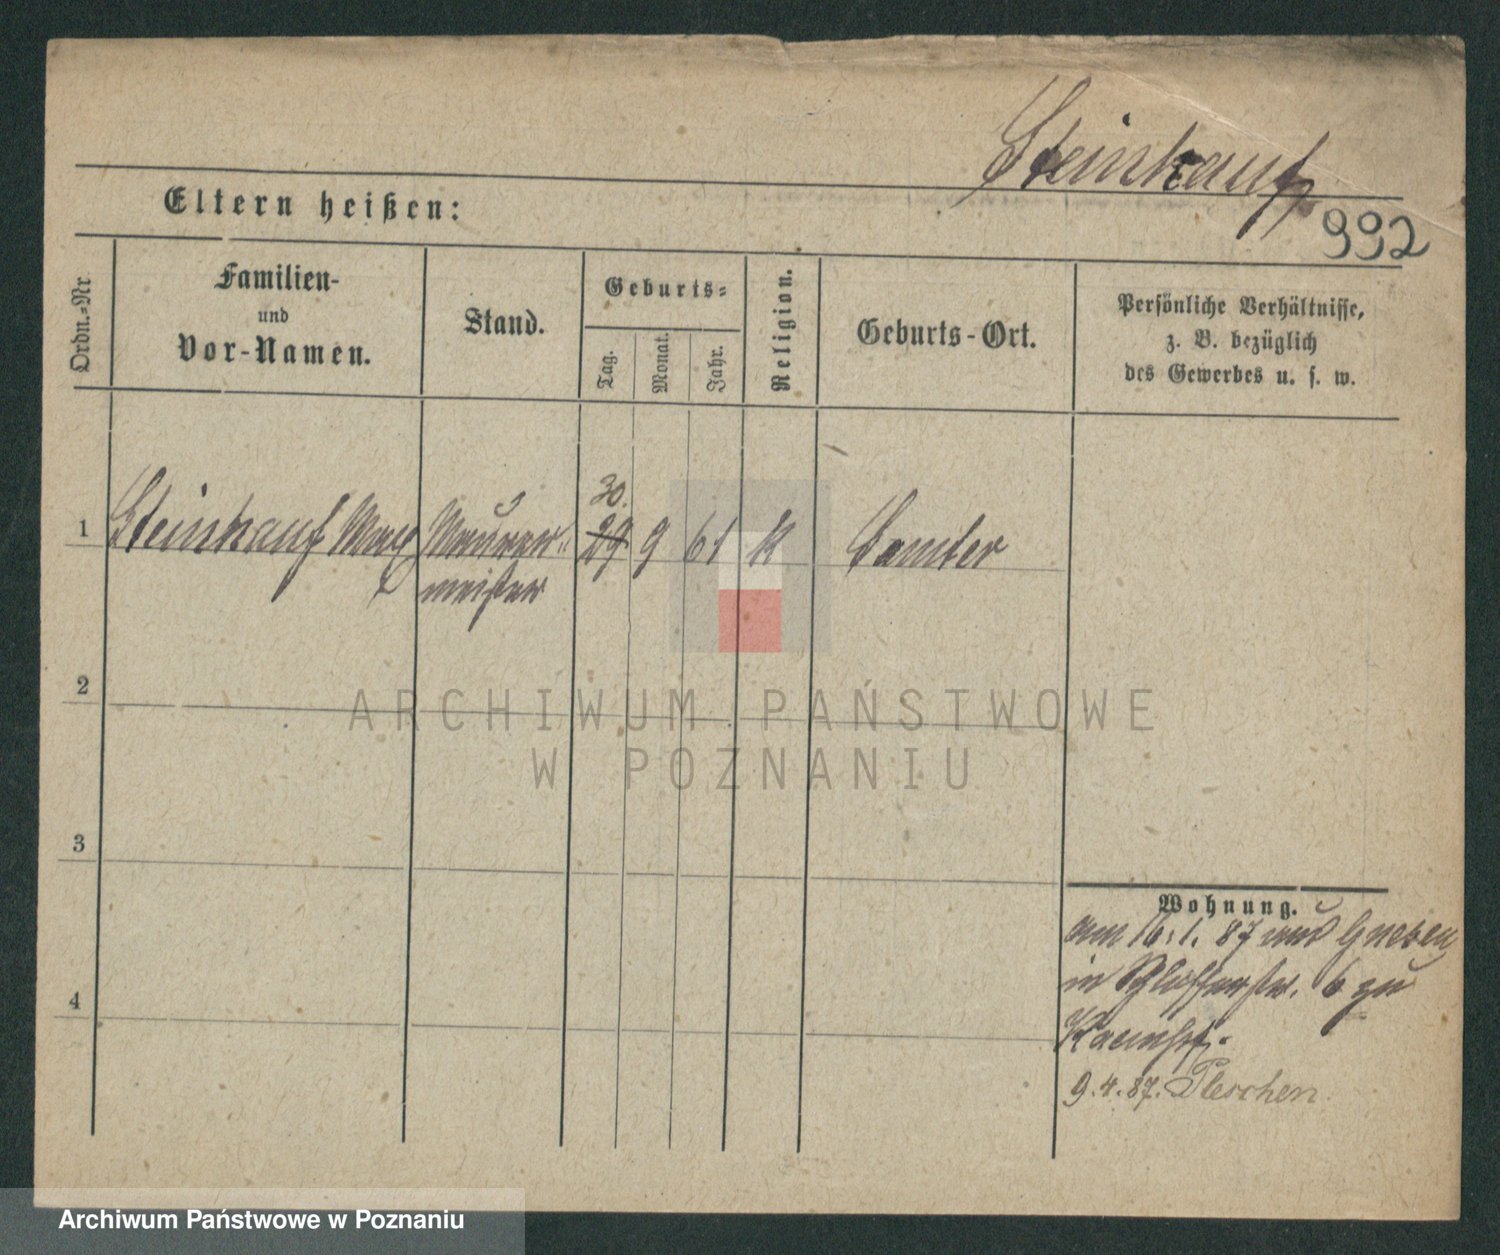 Steinkauf
992
Eltern heißen:
Ordn.-Nr
Familien-
und
Vor-Namen.
Stand.
Geburts-
Tag.
Monat.
Jahr.
Religion.
Geburts-Ort.
Persönliche Verhältnisse,
z. B. bezüglich
des Gewerbes u. s. w.
30.
1 Steinkauf Max Maurer- 29 9 61 K Samter
meister
2
ARCHIWUM PAŃSTWOWE
W POZNANIU
3
4
Wohnung.
am 16.1.87 aus Gnesen
in Schlosserstr. 6 zu
9.4.87. Pleschen.
Archiwum Państwowe w Poznaniu